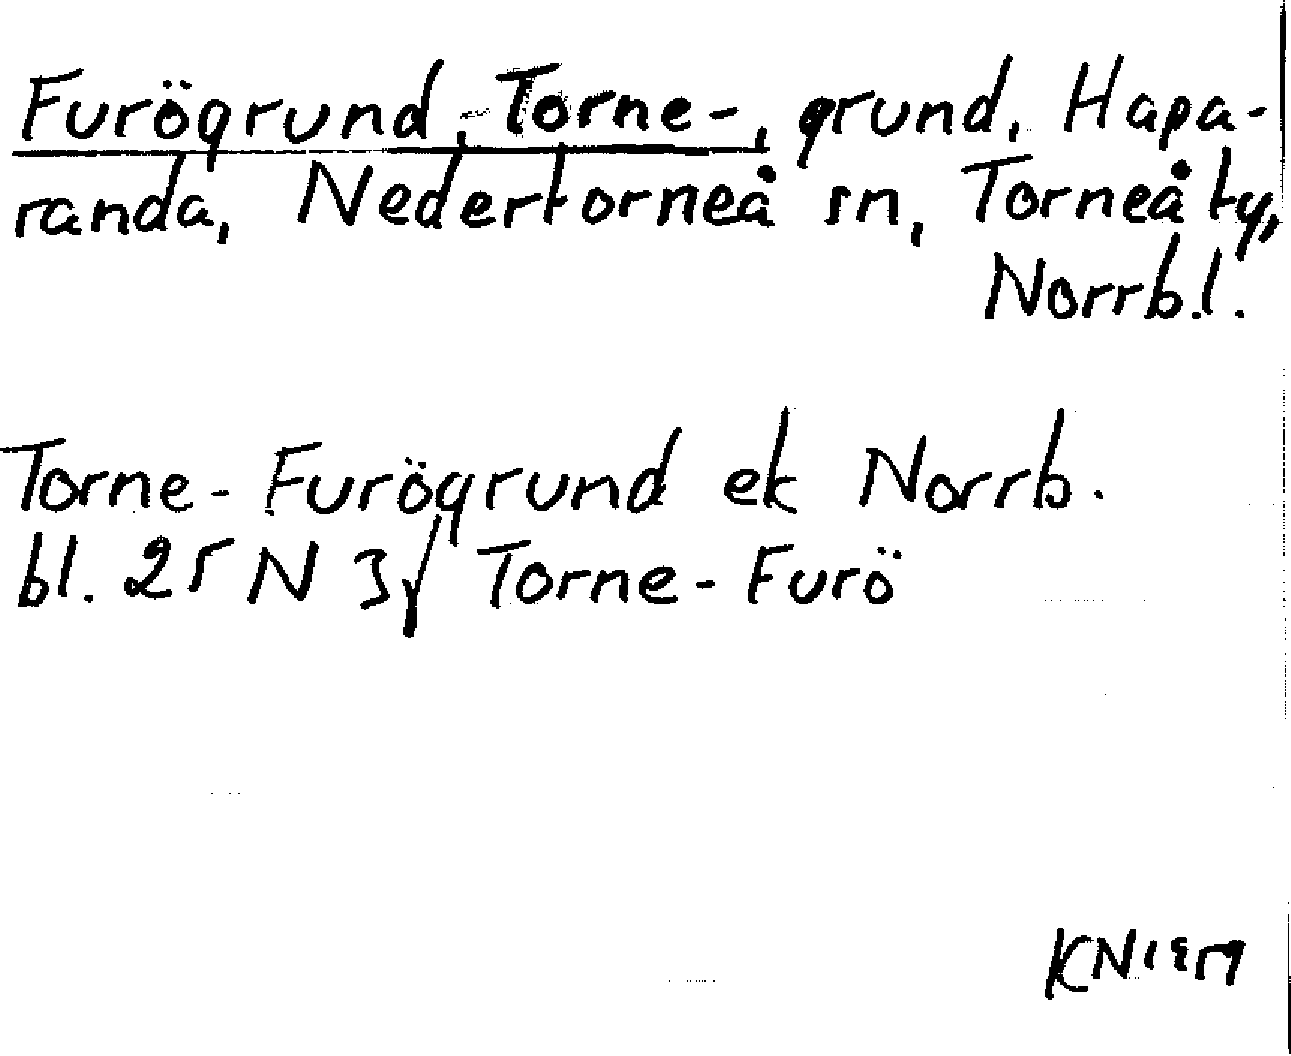 Furögrund, Torne-, grund, Hapa-
randa, Nedertorneå sn, Torneå ty,
Norrb.l.
Torne-Furögrund ek Norrb.
bl. 25 N 3γ Torne-Furö
KN